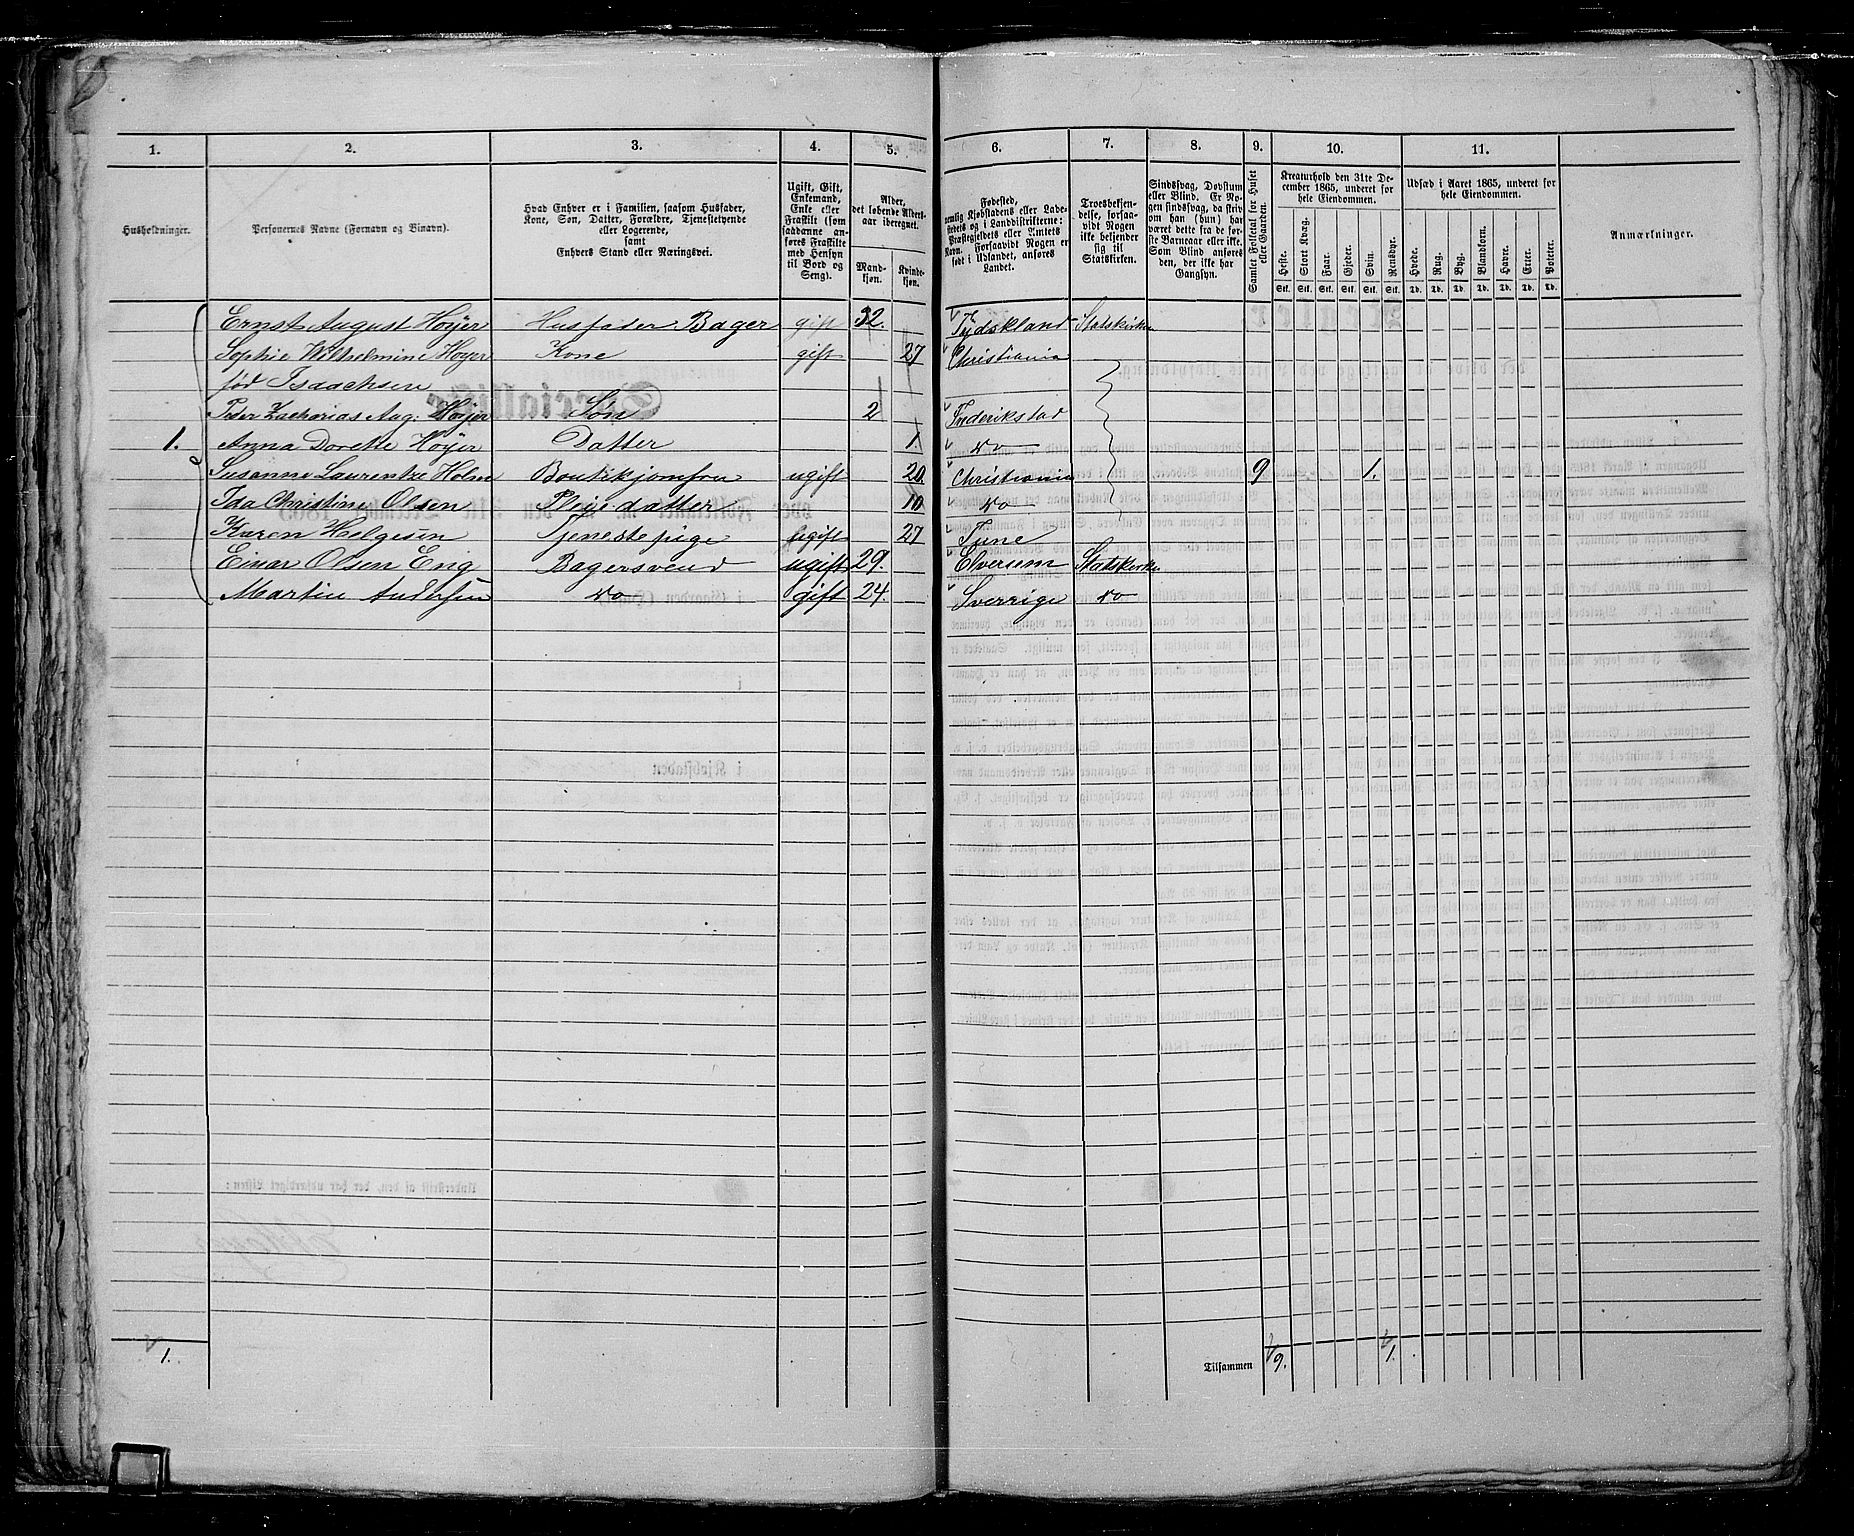 1. 2. 3. 4. 5. 6. 7. 8. 9. 10. 11.
Husholdninger.
Personernes Navne (Fornavn og Binavn).
Hvad Enhver er i Familien, saasom Husfader,
Kone, Søn, Datter, Forældre, Tjenestetyende
eller Logerende,
samt
Enhvers Stand eller Næringsvei.
Ugift, Gift,
Enkemand,
Enke eller
Fraskilt (som
saadanne an-
føres Fraskilte
med Hensyn
til Bord og
Seng).
Alder,
det løbende Alders-
aar iberegnet.
Mand-
kjøn.
Kvinde-
kjøn.
Fødested,
nemlig Kjøbstadens eller Lade-
stedets og i Landdistrikterne:
Præstegjeldets eller Amtets
Navn. Forsaavidt Nogen er
født i Udlandet, anføres
Landet.
Troesbekjen-
delse, forsaa-
vidt Nogen
ikke bekjender
sig til
Statskirken.
Sindssvag, Døvstum
eller Blind. Er No-
gen sindssvag, da skriv
om han (hun) har
været dette fra de før-
ste Barneaar eller ikke.
Som Blind anføres
den, der ikke har
Gangsyn.
Samlet Folketal for Huset
eller Gaarden.
Kreaturhold den 31te De-
cember 1865, underet for
hele Eiendommen.
Heste. Stort Kvæg. Faar. Gjeder. Svin. Rensdyr.
Stk. Stk. Stk. Stk. Stk. Stk.
Udsæd i Aaret 1865, underet for
hele Eiendommen.
Hvede. Rug. Byg. Blandkorn. Havre. Erter. Poteter.
Td. Td. Td. Td. Td. Td. Td.
Anmærkninger.
Ernst August Høyer Husfader Bager gift 32. Tydskland Statskirke
Sophie Wilhelmine Høyer Kone gift 27 Christiania
fød Isaachsen
Peder Zacharias Aug: Høyer Søn 2 Frederikstad
1. Anna Dorette Høyer Datter 1 do
Susanne Laurentze Holm Boutikjomfru ugift 20. Christiania 9 1.
Ida Christine Olsen Pleiedatter 10 do
Karen Helgesen Tjenestepige ugift 27 Tune
Einar Olsen Eng Bagersvend ugift 29. Elverum Statskirke
Martin Andersen do gift 24. Sverrige do
1.
Tilsammen 9. 1.